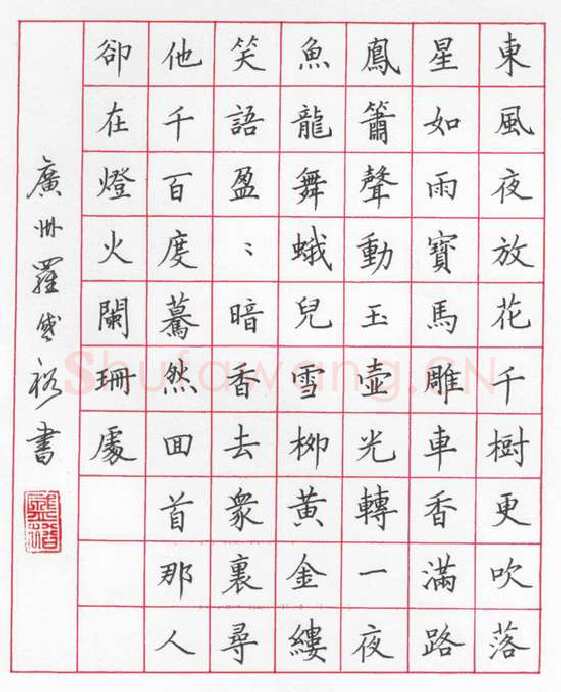 東風夜放花千樹更吹落
星如雨寶馬雕車香滿路
鳳簫聲動玉壺光轉一夜
魚龍舞蛾兒雪柳黃金縷
笑語盈〻暗香去衆裏尋
他千百度驀然囬首那人
卻在燈火闌珊處
廣州羅裕書
Shufawang.CN